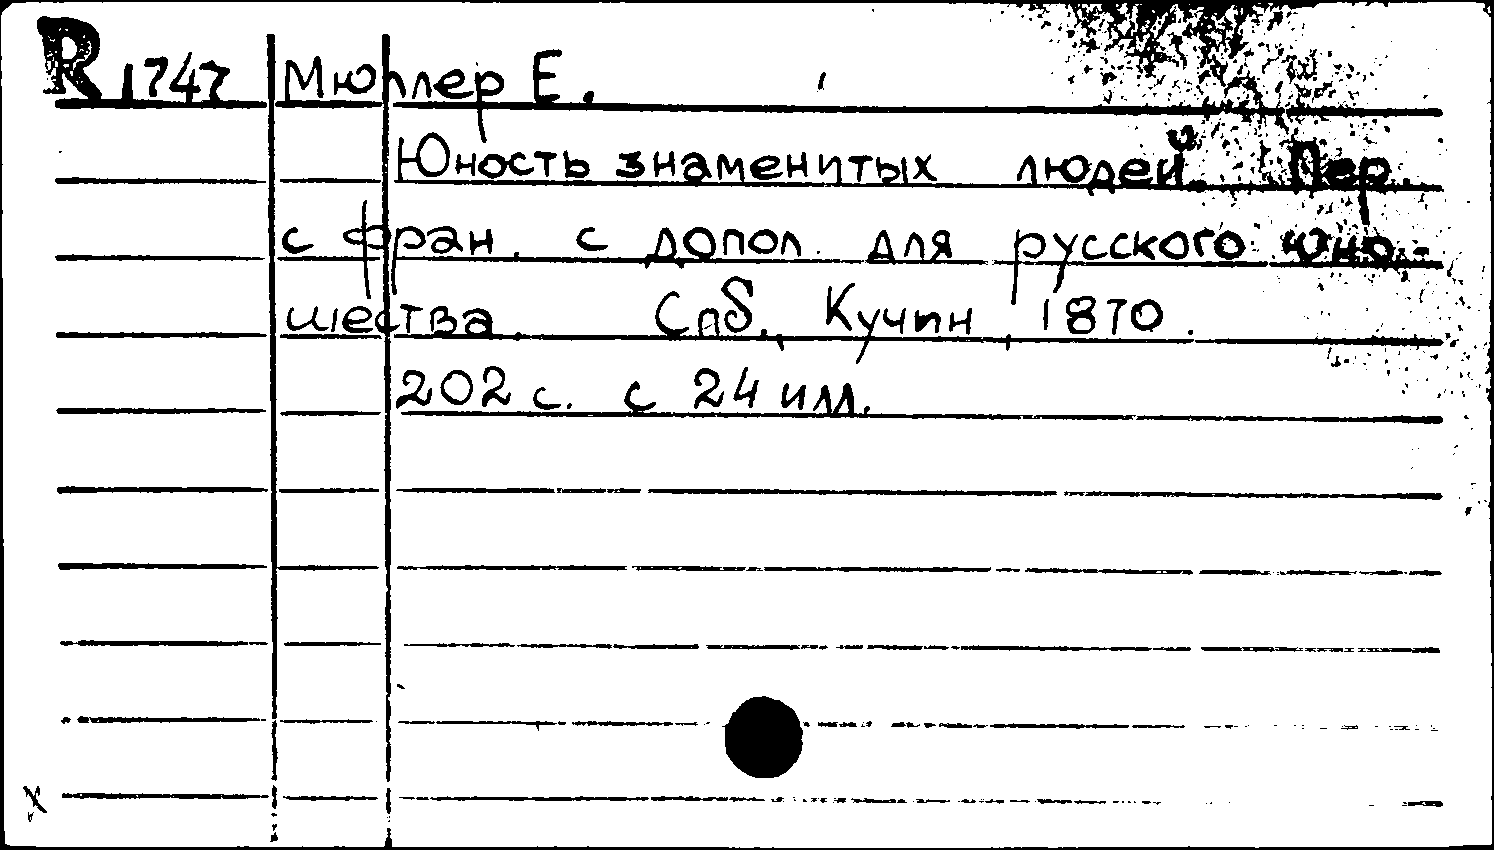 R 1747 Мюллер Е.
Юность знаменитых людей. Пер.
с фран. с допол. для русского юно-
шества. Спб., Кучин, 1870.
202 с. с 24 илл.